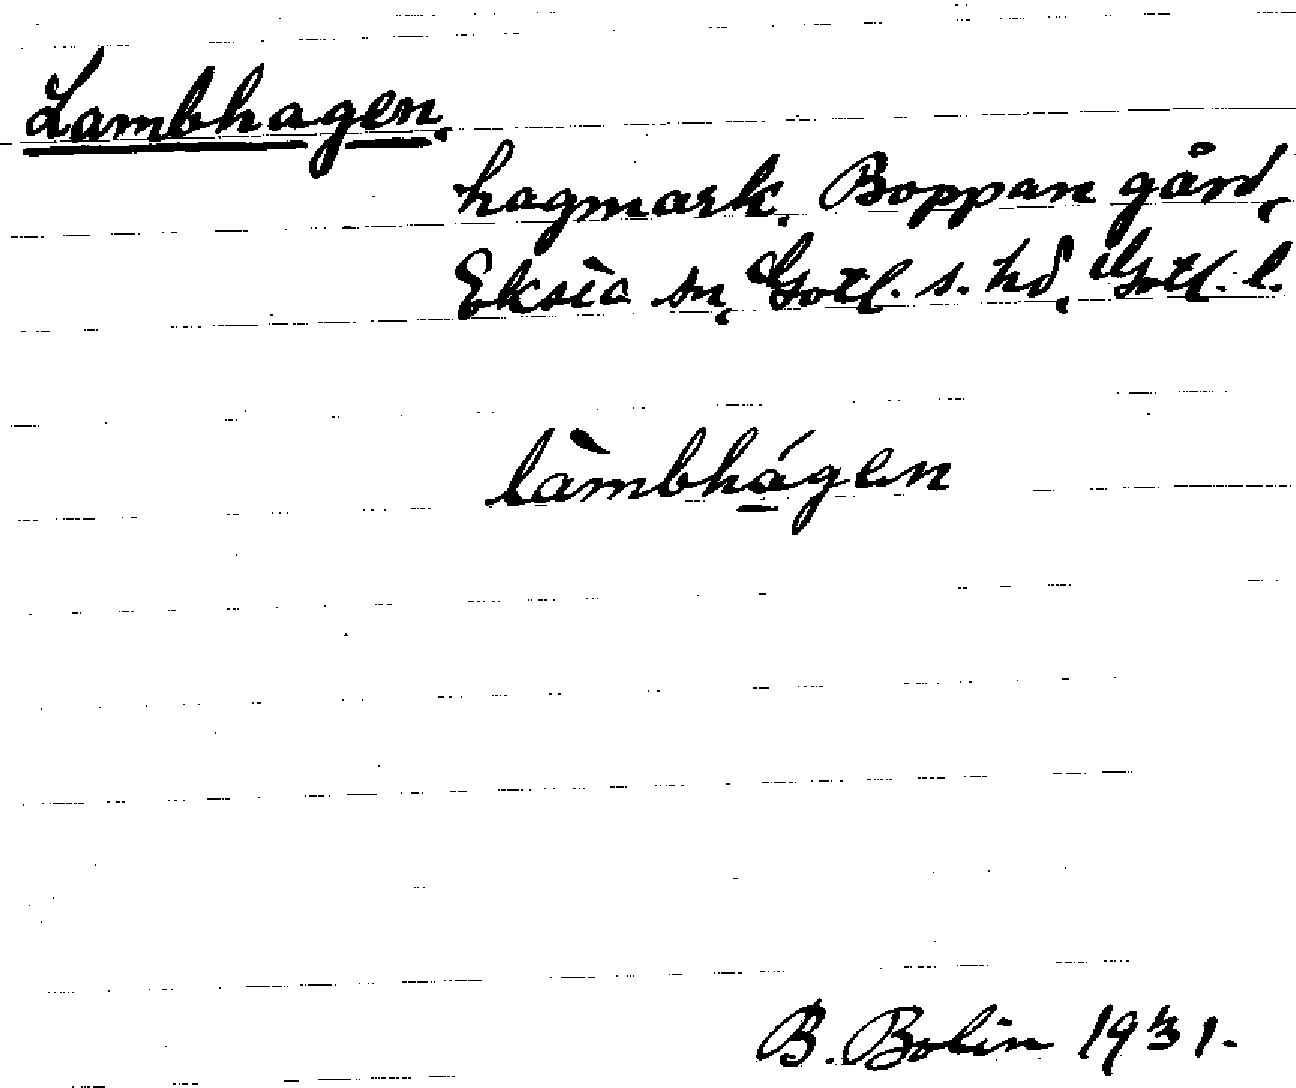 Lambhagen.
hagmark. Boppan gård,
Eksta sn, Gotl. s. hd, Gotl. l.
làmbhá̱gen
B. Bolin 1931.